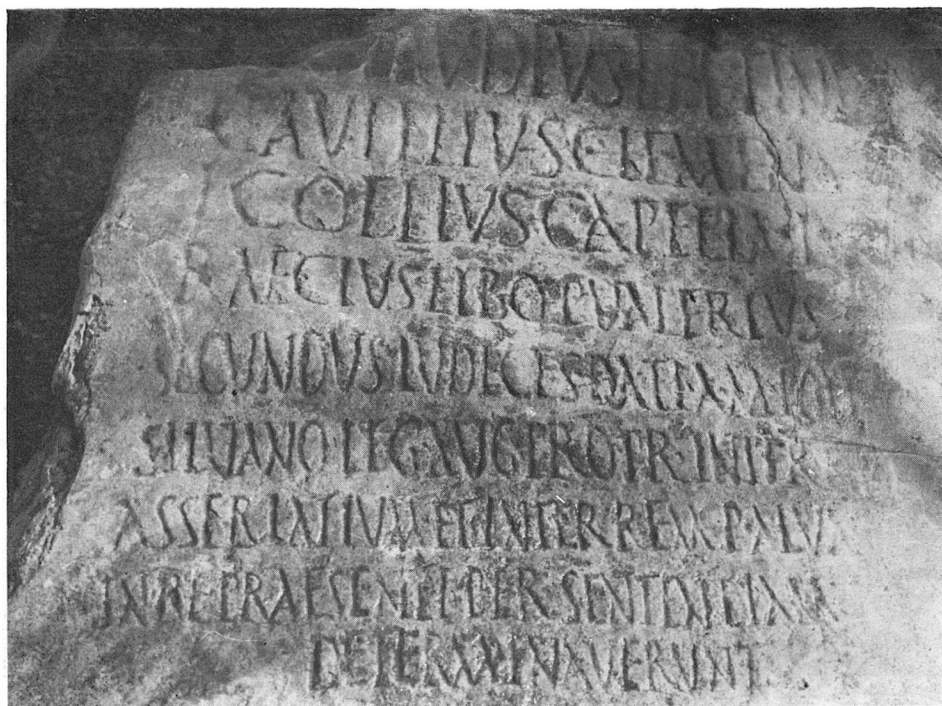 C AVILLIVS CLEMEN
COELIVS CAPELLA
RAECIVS LIBO P VALERIVS
SECVNDVS IVDICES DATI A M
SILVANO LEG AVG PRO PR INTER
ASSERIATIVM ET INTER REM P ALV
IN RE PRAESENTI PER SENTENTIAM
DETERMINAVERVNT